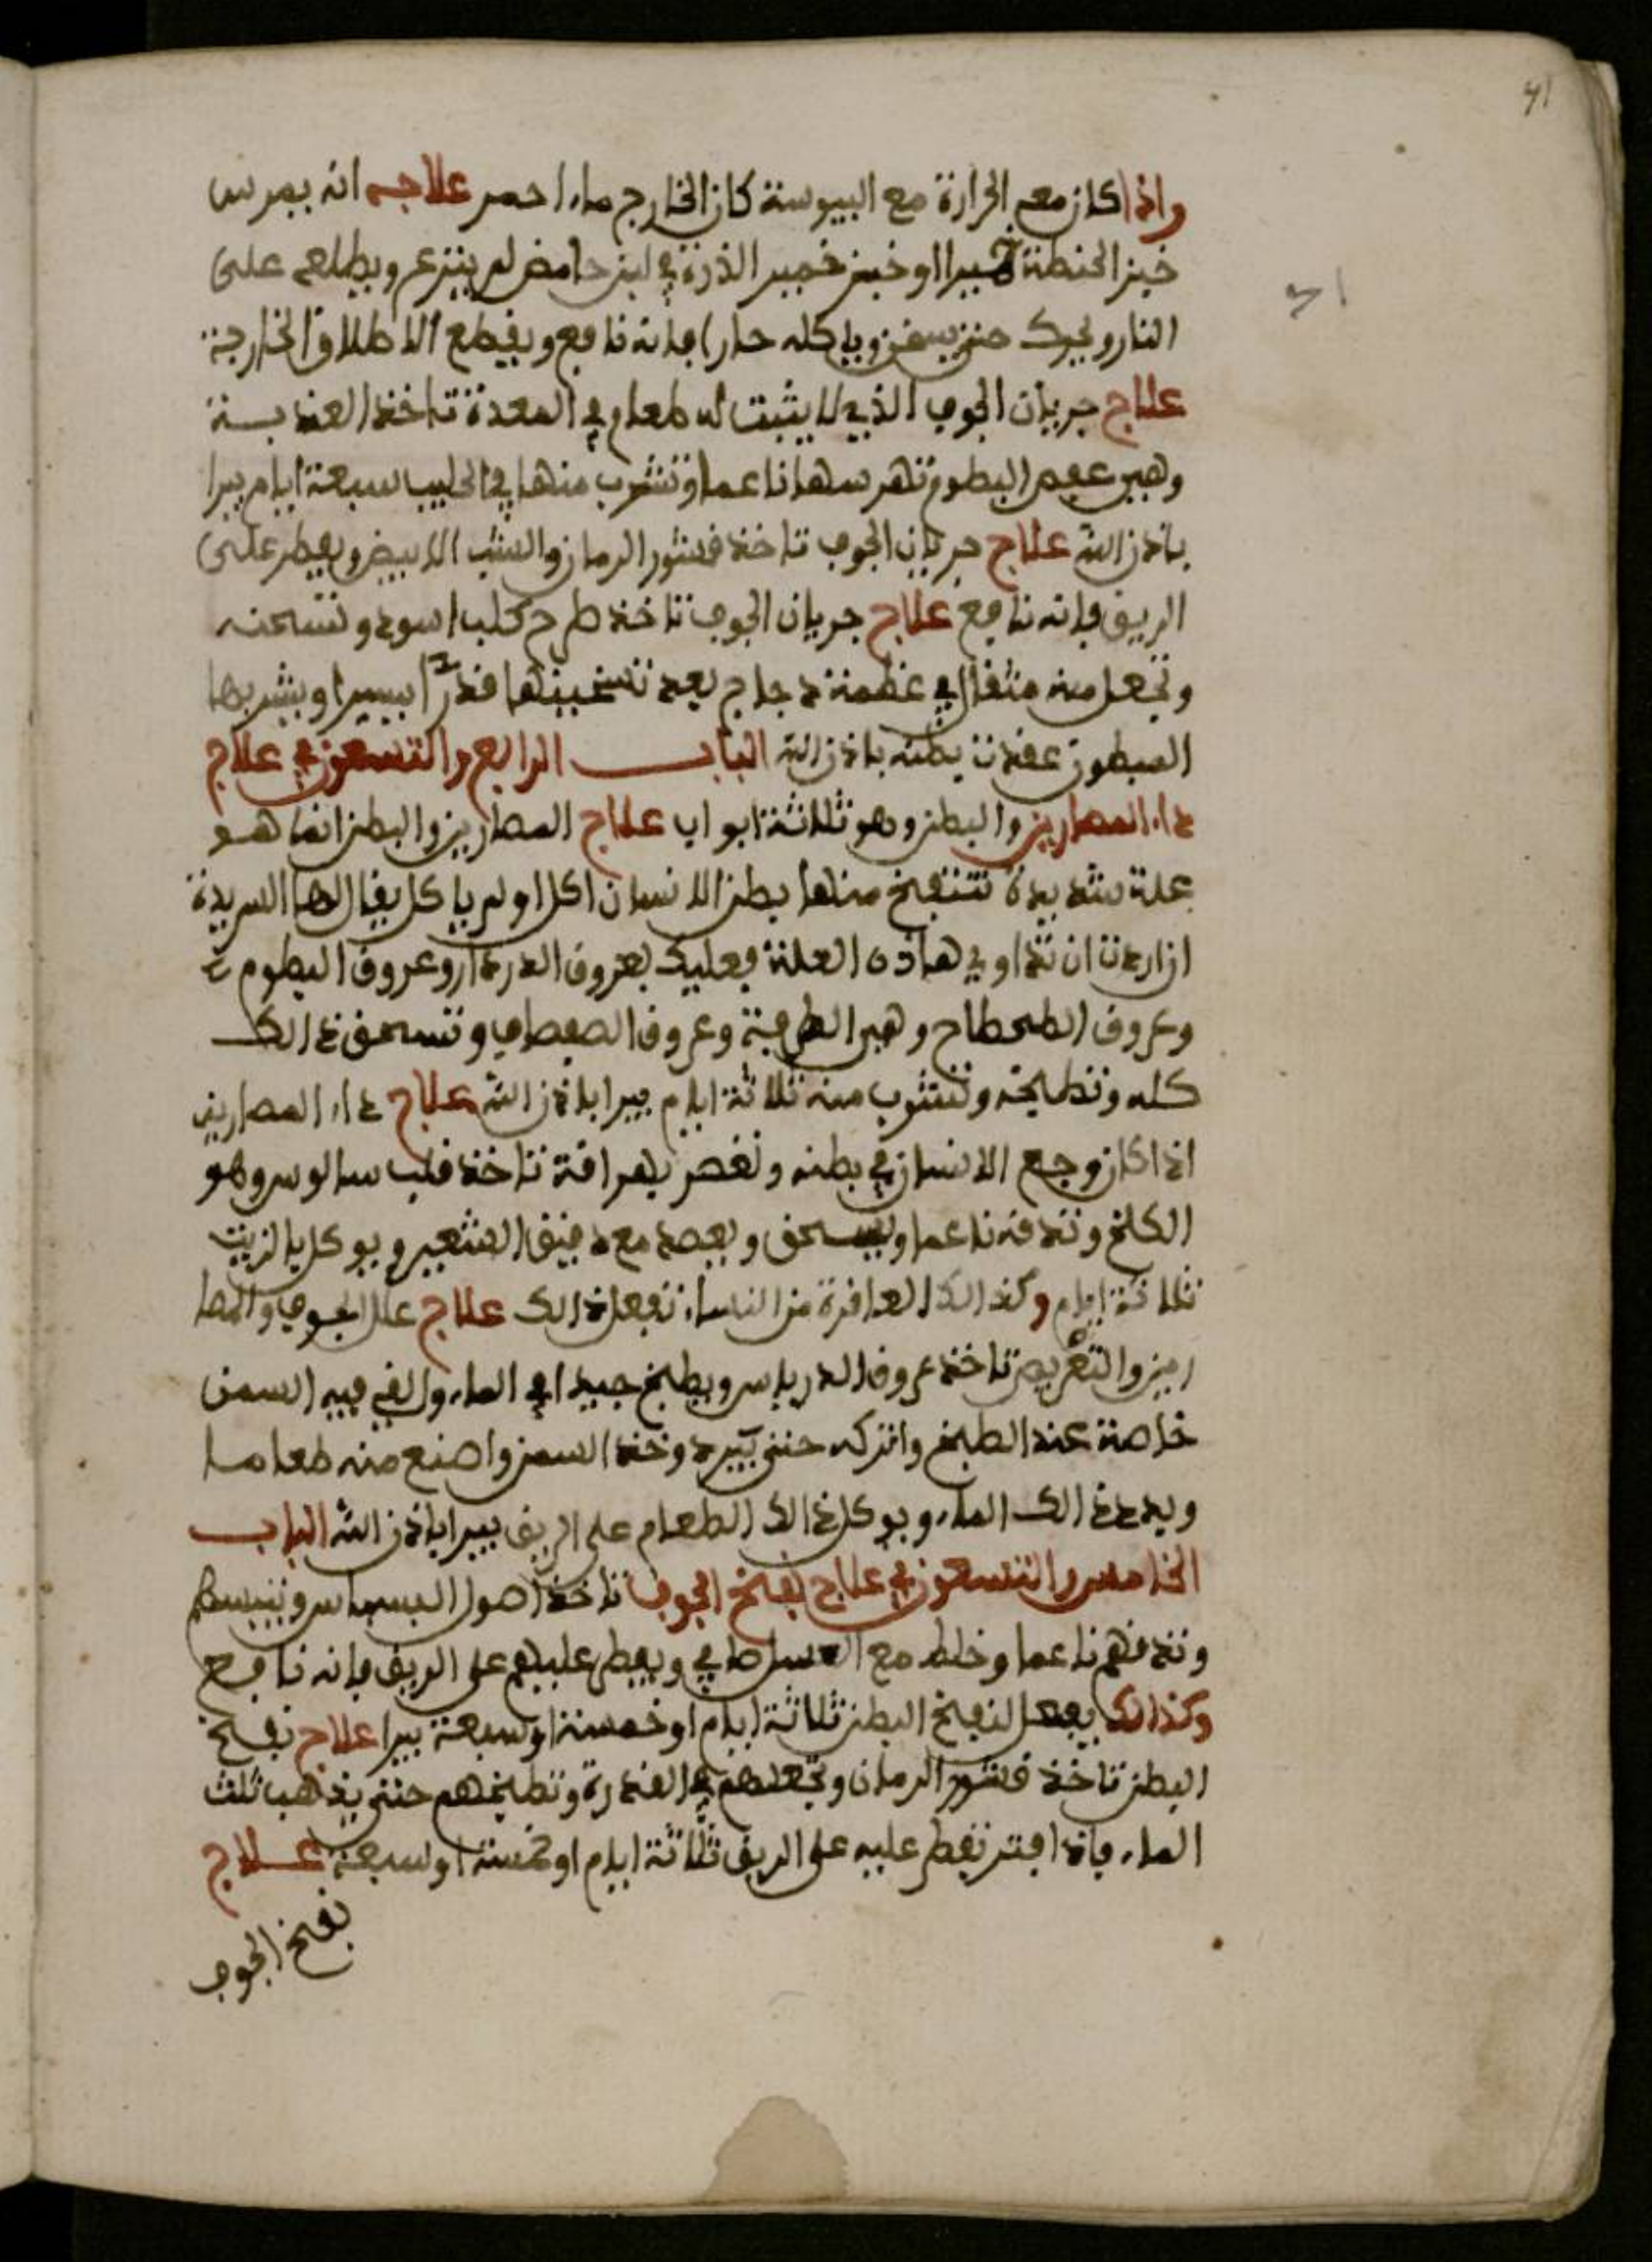 41
واذا كان مع الحرارة مع اليبوسة كان الخارج ماء احمر علاجه انه يمرس
خبز الحنطة خميرا او خبز خمير الذرة في لبن حامض لم ينزع ويطلعه على
النار ويحرك حتى يسخن وياكله حارا فانه نافع ويقطع الاطلاق الخارجة
علاج جريان الجوف الذي لا يثبت له طعام في المعدة تاخذ العذبسة
وهي عفص البطوم تهرسها ناعما وتشرب منها في الحليب سبعة ايام يبرا
باذن الله علاج جريان الجوف تاخذ قشور الرمان والشب الابيض ويفطر على
الريق فانه نافع علاج جريان الجوف تاخذ طرح كلب اسود وتسحقه
وتجعل منه مثقال في عظمة دجاج بعد تسخينها قدرا يسيرا ويشربها
المبطون عقدت بطنه باذن الله الباب الرابع والتسعون في علاج
داء المصارين والبطن وهو ثلاثة ابواب علاج المصارين والبطن انما هو
علة شديدة تنتفخ منها بطن الانسان اكل او لم ياكل يقال لها السريدة
ان اردت ان تداوي هاذه العلة فعليك بعروق الدردار وعروق البطوم
وعروق الطحطاح وهي الطرفة وعروق الصفصاف وتسحق ذالك
كله وتطبخه وتشرب منه ثلاثة ايام يبرا باذن الله علاج داء المصارين
اذا كان وجع الانسان في بطنه ونغص بعرافة تاخذ قلب سالوس وهو
الكلخ وتدقه ناعما ويسحق ويعصد مع دقيق الشعير ويوكل بالزيت
ثلاثة ايام وكذالك العاقرة من النساء تفعل ذالك علاج علل الجوف والمصا
رين والتغريص تاخذ عروق الدرياس ويطبخ جيدا في الماء والقي فيه السمن
خاصة عند الطبخ واتركه حتى يبرد وخذ السمن واصنع منه طعاما
ويدد ذالك الماء ويوكل ذالك الطعام على الريق يبرا باذن الله الباب
الخامس والتسعون في علاج نفخ الجوف تاخذ اصول البسباس وتيبسهم
وتدقهم ناعما وخلط مع السلطافي ويفطر عليهم على الريق فانه نافع
وكذالك يفعل لنفخ البطن ثلاثة ايام او خمسة او سبعة يبرا علاج نفخ
البطن تاخذ قشور الرمان وتجعلهم في القدرة وتطبخهم حتى يذهب ثلث
الماء فاذا افتر تفطر عليه على الريق ثلاثة ايام او خمسة او سبعة علاج
نفخ الجوف